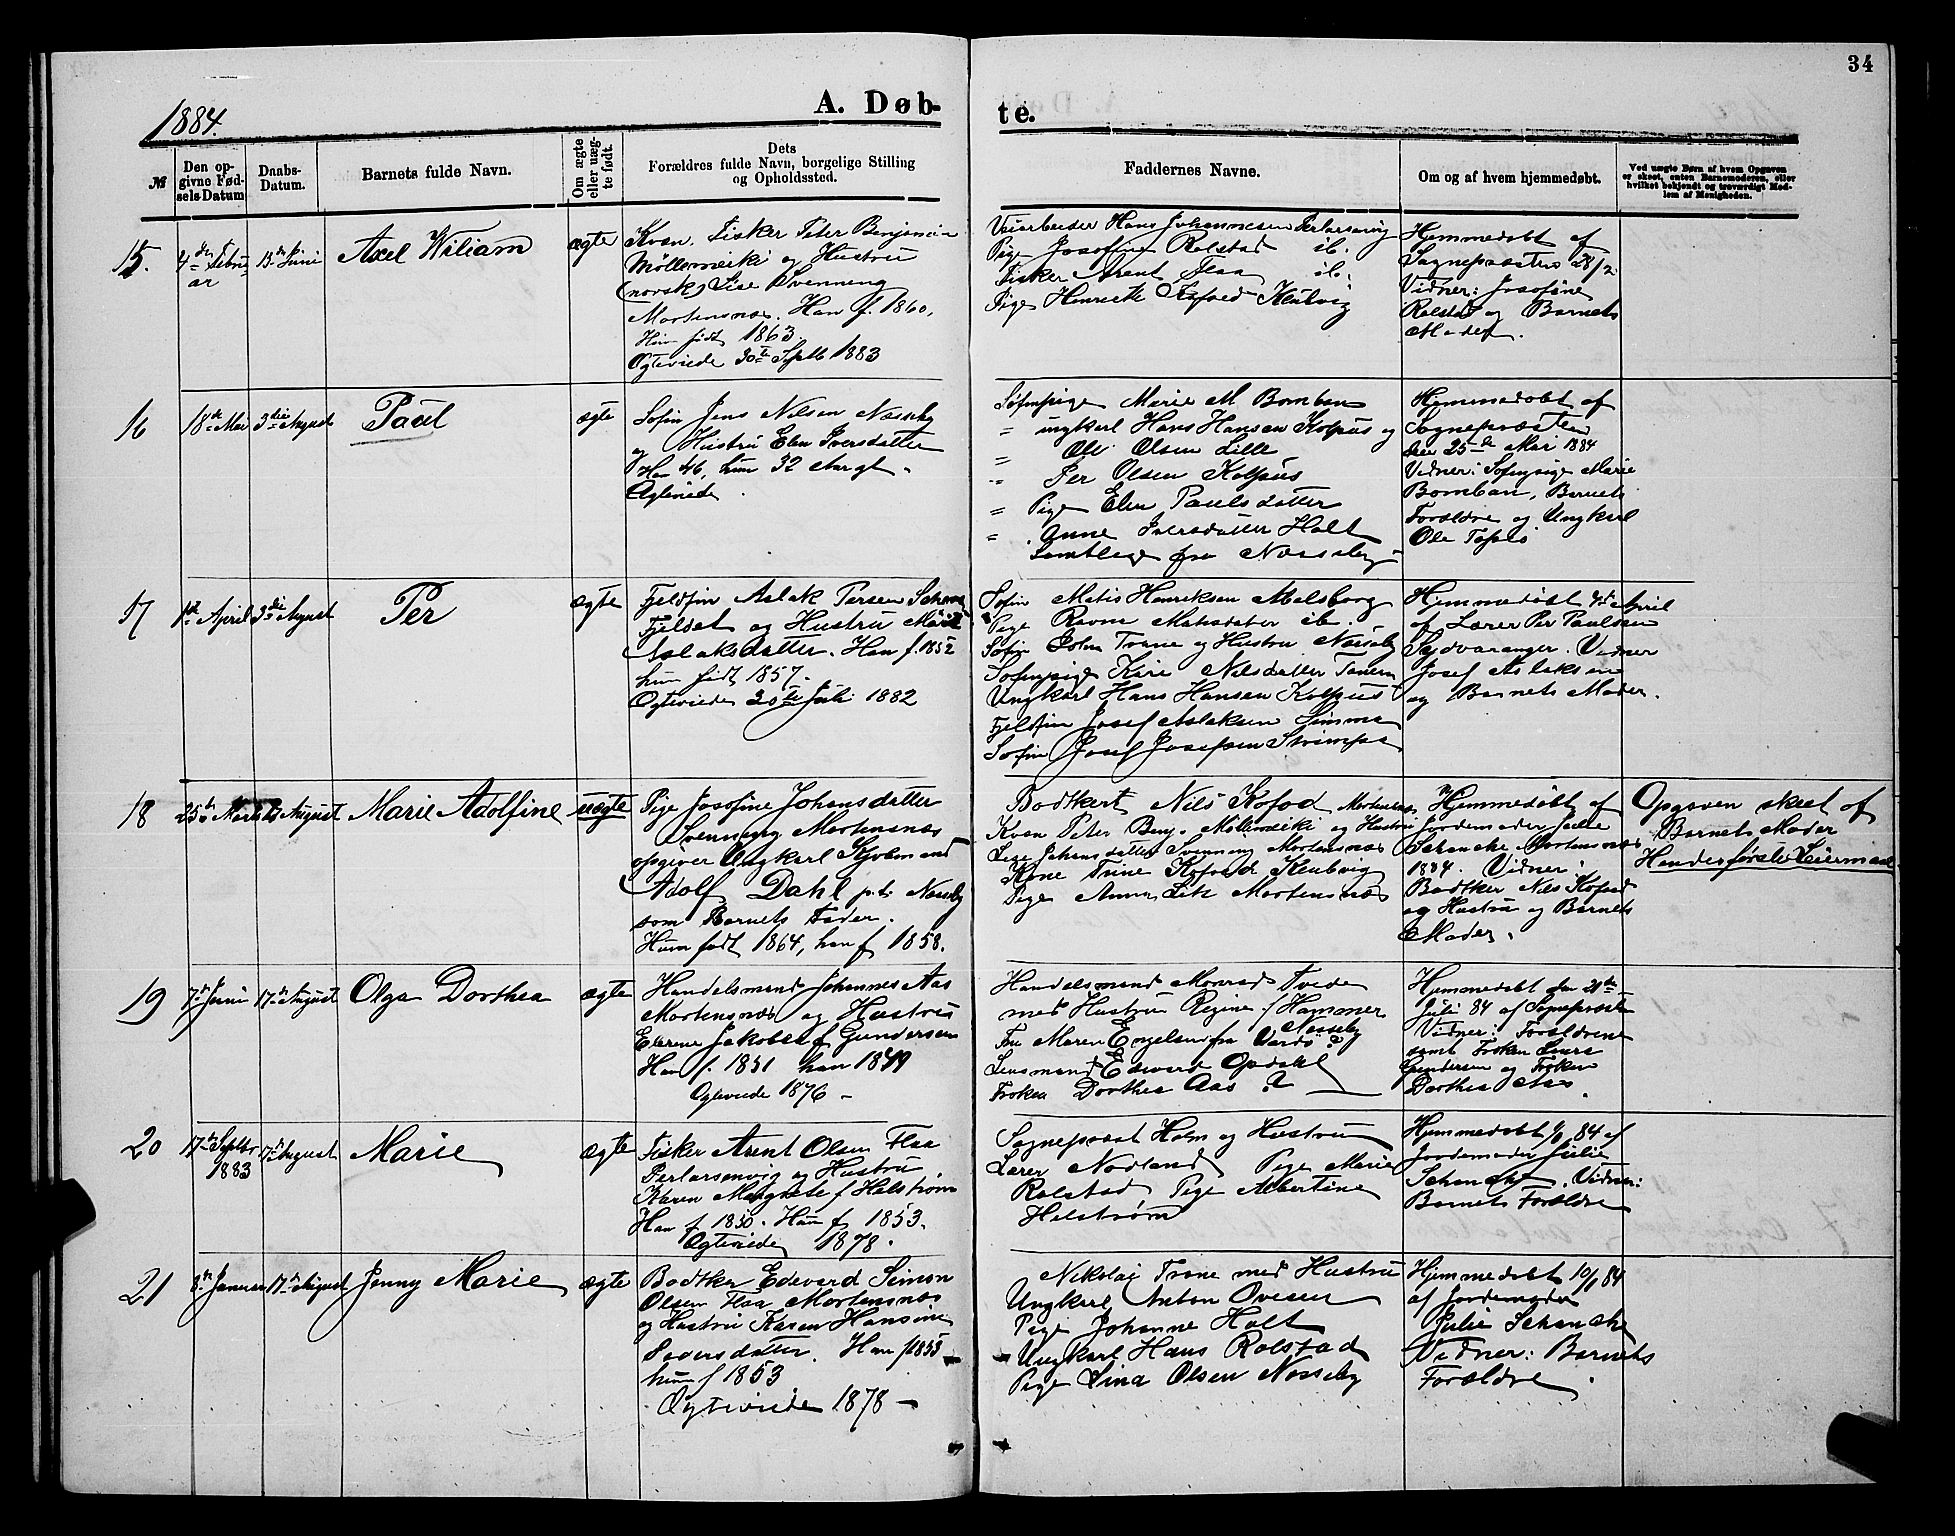 34
1884.
A. Døb-
te.
№
Den op-
givne Fød-
sels-Datum
Daabs-
Datum.
Barnets fulde Navn.
Om ægte
eller uæg-
te født.
Dets
Forældres fulde Navn, borgelige Stilling
og Opholdssted.
Faddernes Navne.
Om og af hvem hjemmedøbt.
Ved uægte Børn af hvem Opgaven
er skeet, enten Barnemoderen, eller
hvilket bekjendt og troværdigt Med-
lem af Menigheden.
15.
4de Febru
ar
15de Juni
Axel Wiliam
ægte
Kvæn. Fisker Peter Benjamin
Möllemeiki og Hustru
(norsk) Lise Svenning
Mortensnæs. Han f. 1860,
Hun født 1863.
Ægteviede 30te Septb 1883
Veiarbeider Hans Johannesen Perlarsavig
Pige Josefine Rolstad ib.
Fisker Arent Flaa ib.
Pige Henriette Kofoed Klubvig
Hjemmedøbt af
Sognepræsten 28/2
Vidner: Josefine
Rolstad og Barnets
Moder.
16
18de Mai
3die August
Paul
ægte
Søfin Jens Nilsen Næsseby
og Hustru Elen Iversdatter
Han 46, hun 32 Aar gl.
Ægteviede.
Søfinpige Marie M Bomban
" ungkarl Hans Hansen Kolpus og
" Ole Olsen Lille
" Per Olsen Kolpus
" Pige Elen Paulsdatter
" Anne Iversdatter Holt
Samtlige fra Næsseby
Hjemmedøbt af
Sognepræsten
den 25de Mai 1884
Vidner: Søfinpige Marie
Bomban, Barnets
Forældre og Ungkarl
Ole
17
1ste April
3die August
Per
ægte
Fjeldfin Aslak Persen
Fjeldet og Hustru Marit
Aslaksdatter. Han f. 1852
hun født 1857.
Ægteviede 30te Juli 1882
Søfin Matis Henriksen Mælsborg
Pige Ravna Matisdatter ib.
Søfin John Trane og Hustru Næsseby
Søfinpige Kari Nilsdatter Tanem
Ungkarl Hans Hansen Kolpus
Fjeldfin Josef Aslaksen Simma
Søfin Josef Josefsen Strimpa
Hjemmedøbt 4de April
af Lærer Per Paulsen
Sydvaranger. Vidner
Josef Aslaksen
og Barnets Moder.
18
25de Marts
August
Marie Adolfine
uægte
Pige Josefine Johansdatter
Svenning Mortensnæs
opgiver Ungkarl
Adolf Dahl p.t. Næsseby
som Barnets Fader.
Hun født 1864, han f 1858.
Bødkert Nils Kofod Mortensnæs
Kvæn Peter Benj. Möllemeiki og Hustru
Lise Johansdatter Svenning Mortensnæs
Kone Trine Kofoed Klubvig
Pige Anna Mortensnæs
Hjemmedøbt af
Jordemoder Julie
Schanche Mortensnæs
1884. Vidner:
Bødker Nils Kofoed
og Hustru og Barnets
Moder.
Opgaven skeet af
Barnets Moder
Hendes første Leiermaal
19
7de Juni
17de August
Olga Dorthea
ægte
Handelsmand Johannes Aas
Mortensnæs og Hustru
Jakobea f Gundersen
Han f. 1851 hun 1849
Ægteviede 1876 -
Handelsmand Monrad Tvede
med Hustru Regine f Hammer
Næsseby
Fru Maren Engelsen fra Vardø?
Lensmand Edevard Opdahl
Frøken Dorthea Aas ?
Hjemmedøbt den 21de
Juli 84 af Sognepræsten
Vidner: Forældrene
samt Frøken Laura
Gundersen og Frøken
Dorthea Aas.
20
17de Septbr
1883
17de August
Marie
ægte
Fisker Arent Olsen Flaa
Perlarsenvig og Hustru
Karen Margrete f Halstrøm
Han f 1850. Hun f 1853.
Ægteviede 1878.
Sognepræst Holm og Hustru
Lærer Nodland Pige Marie
Rolstad, Pige Albertine
Halstrøm
Hjemmedøbt 84 af
Jordemoder Julie
Schanche. Vidner:
Barnets Forældre
21
8de Januar
17de August
Jenny Marie
ægte
Bødtker Edevard Simon
Olsen Flaa Mortensnæs
og Hustru Karen Hansine
Han f 1855
hun f 1853
Ægteviede 1878 -
Nikolai Trane med Hustru
Ungkarl Anton Ovesen
Pige Johanne Holt
Ungkarl Hans Rolstad
Pige Lina Olsen Næsseby
Hjemmedøbt 10/1 84
af Jordemoder
Julie Schanche
Vidner: Barnets
Forældre.